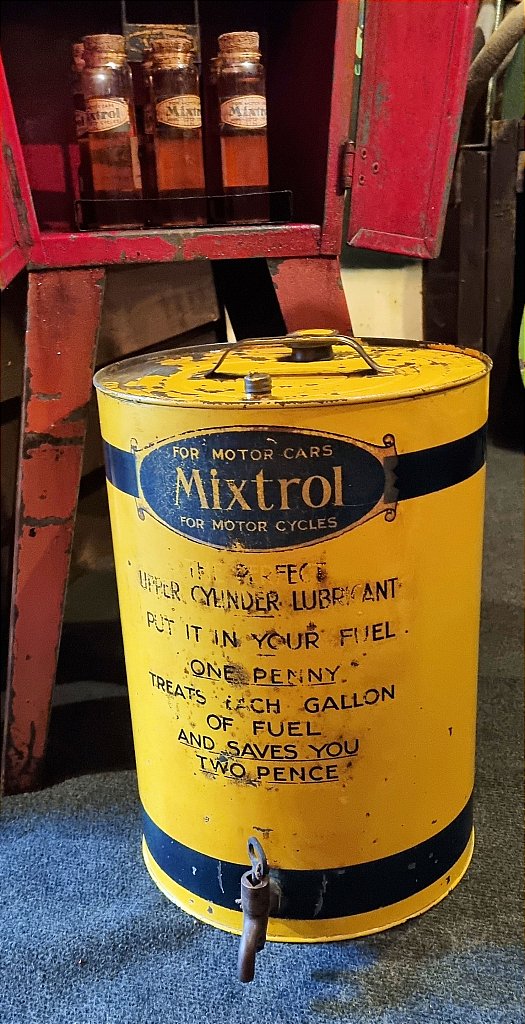 Mixtrol
Mixtrol
Mixtrol
FOR MOTOR CARS
Mixtrol
FOR MOTOR CYCLES
THE PERFECT
UPPER CYLINDER LUBRICANT
PUT IT IN YOUR FUEL.
ONE PENNY
TREATS EACH GALLON
OF FUEL
AND SAVES YOU
TWO PENCE